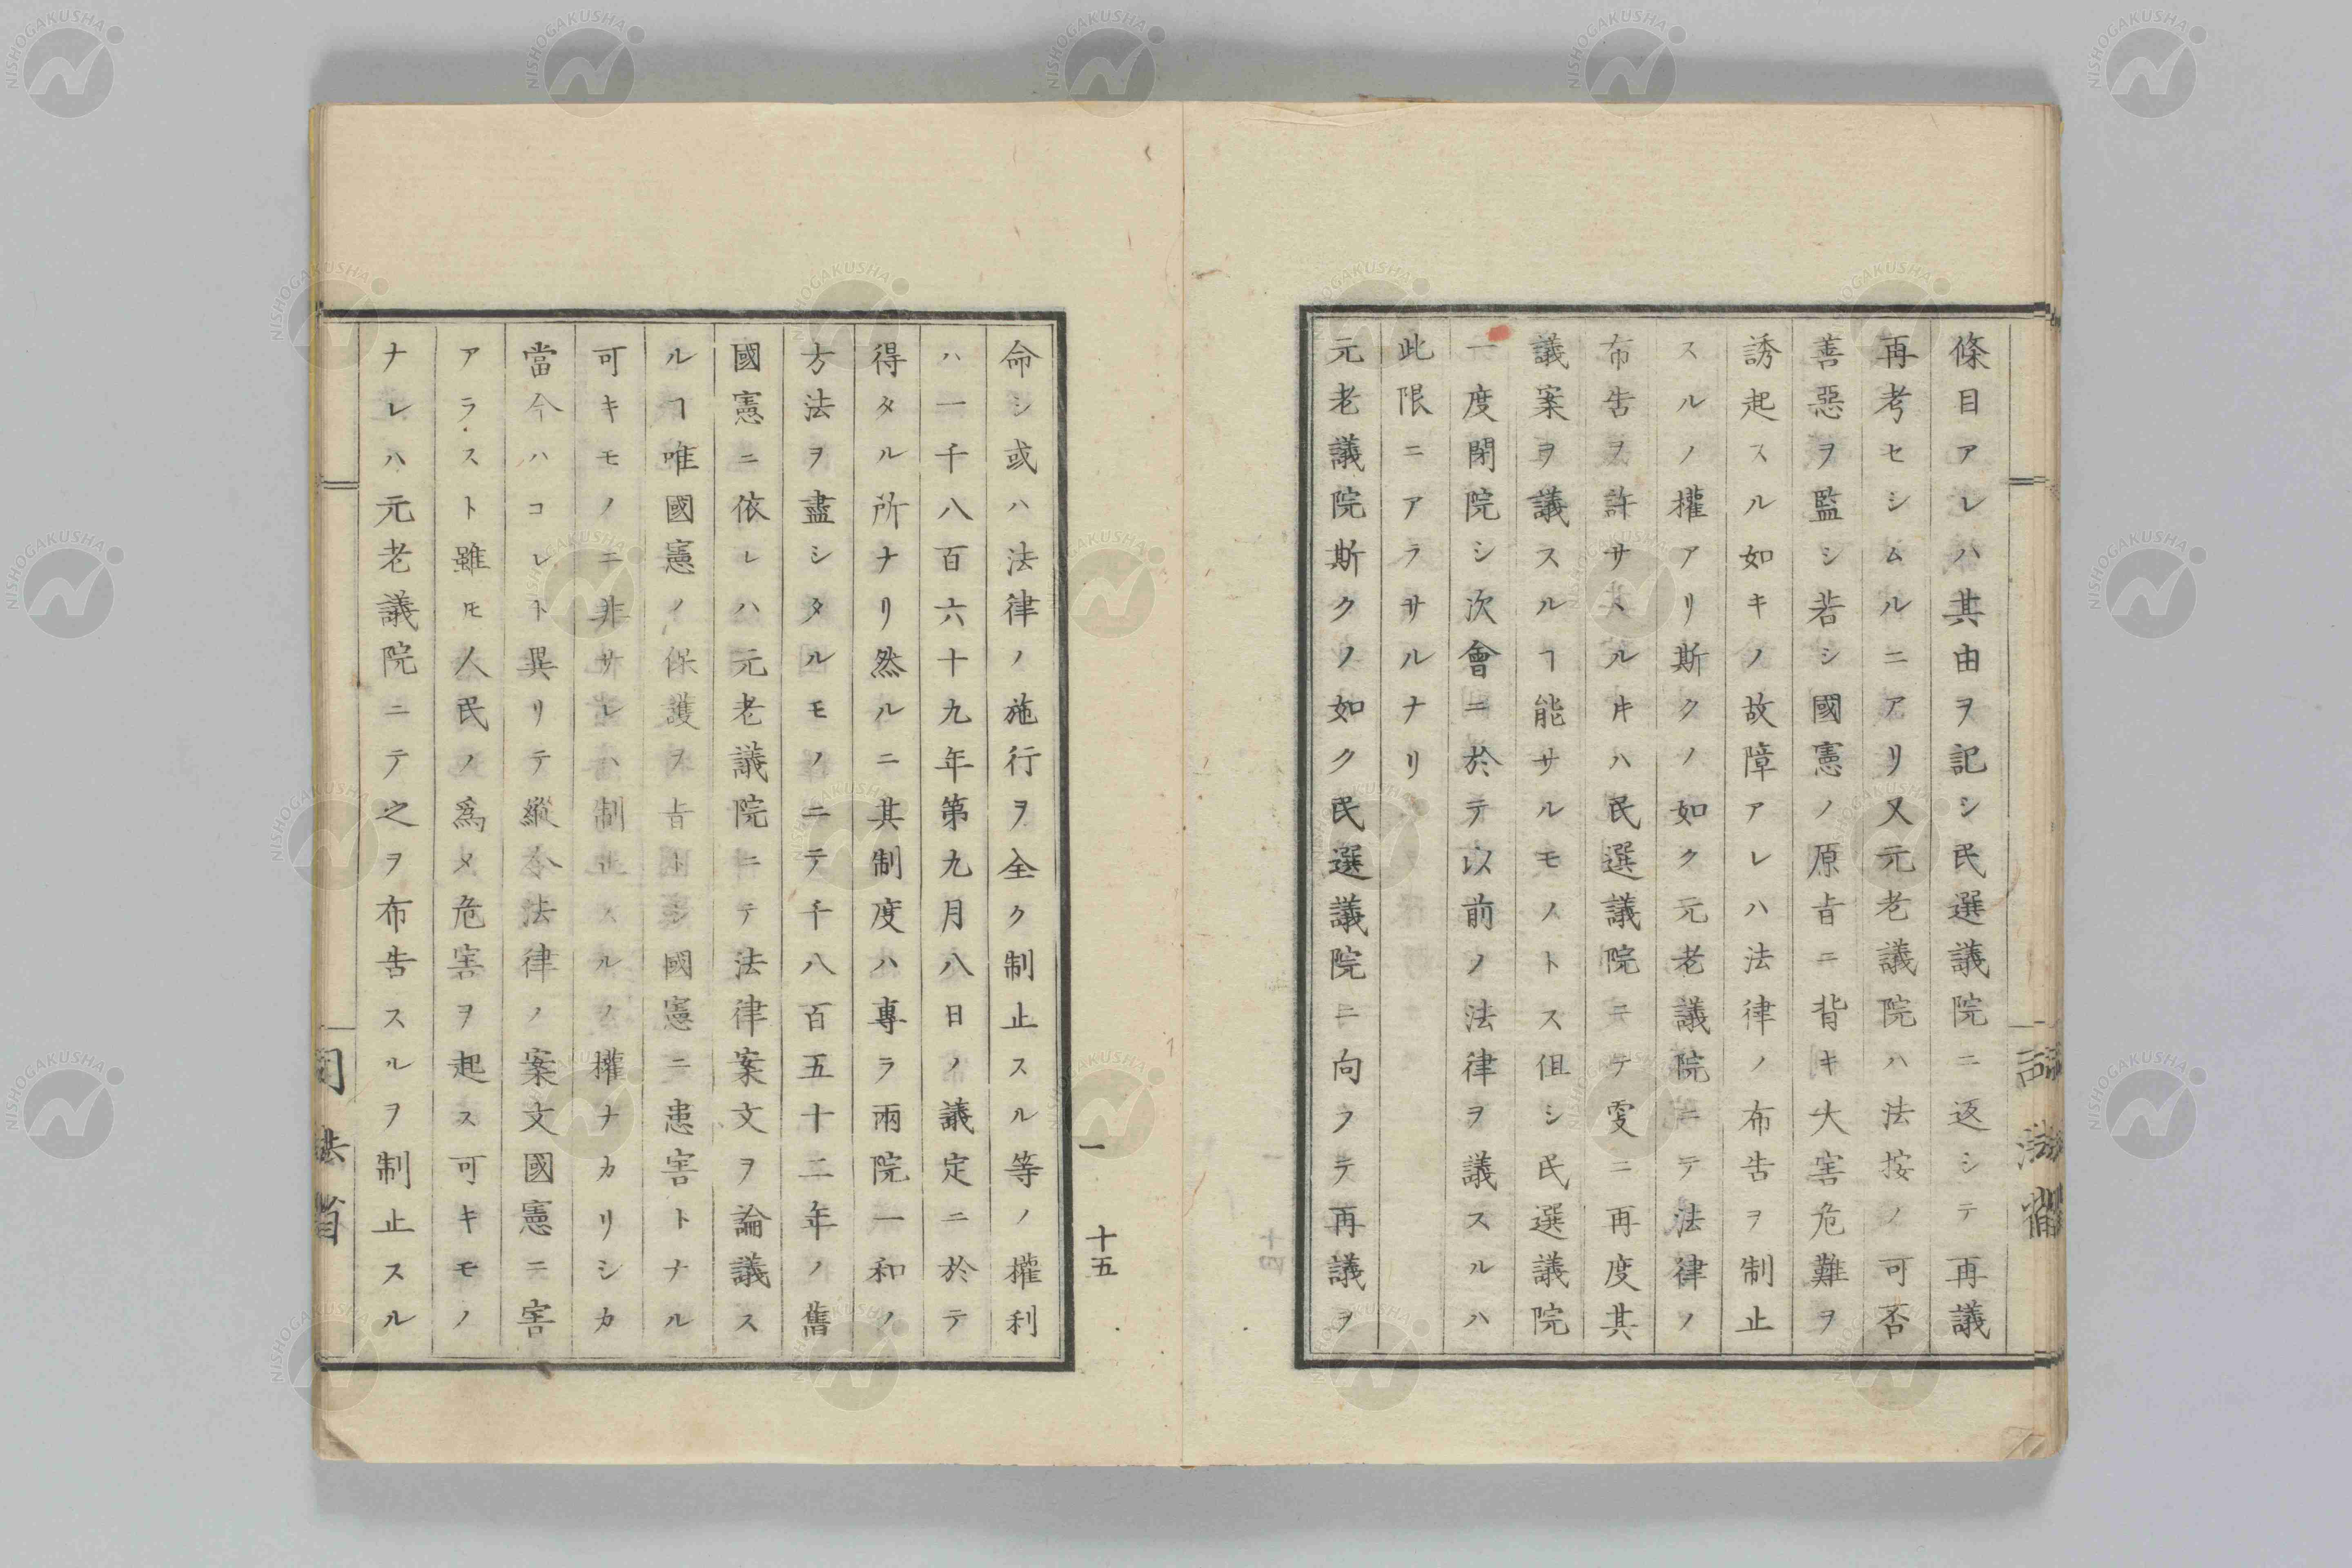 條目アレハ其由ヲ記シ民選議院ニ返シテ再議
再考セシムルニアリ又元老議院ハ法按ノ可否
善惡ヲ監シ若シ國憲ノ原旨ニ背キ大害危難ヲ
誘起スル如キノ故障アレハ法律ノ布告ヲ制止
スルノ權アリ斯クノ如ク元老議院ニテ法律ノ
布告ヲ許サヽルキハ民選議院ニテ雯ニ再度其
議案ヲ議スルヿ能サルモノトス但シ民選議院
一度閉院シ次會ニ於テ以前ノ法律ヲ議スルハ
此限ニアラサルナリ
元老議院斯クノ如ク民選議院ニ向フテ再議ヲ
司法省
一
十五
命シ或ハ法律ノ施行ヲ全ク制止スル等ノ權利
ハ一千八百六十九年第九月八日ノ議定ニ於テ
得タル所ナリ然ルニ其制度ハ專ラ兩院一和ノ
方法ヲ盡シタルモノニテ千八百五十二年ノ舊
國憲ニ依レハ元老議院ニテ法律案文ヲ論議ス
ルヿ唯國憲ノ保護ヲ旨トシ國憲ニ患害トナル
可キモノニ非サレハ制止スルノ權ナカリシカ
當今ハコレト異リテ縱令法律ノ案文國憲ニ害
アラスト雖モ人民ノ爲メ危害ヲ起ス可キモノ
ナレハ元老議院ニテ之ヲ布告スルヲ制止スル
司法省
NISHOGAKUSHA